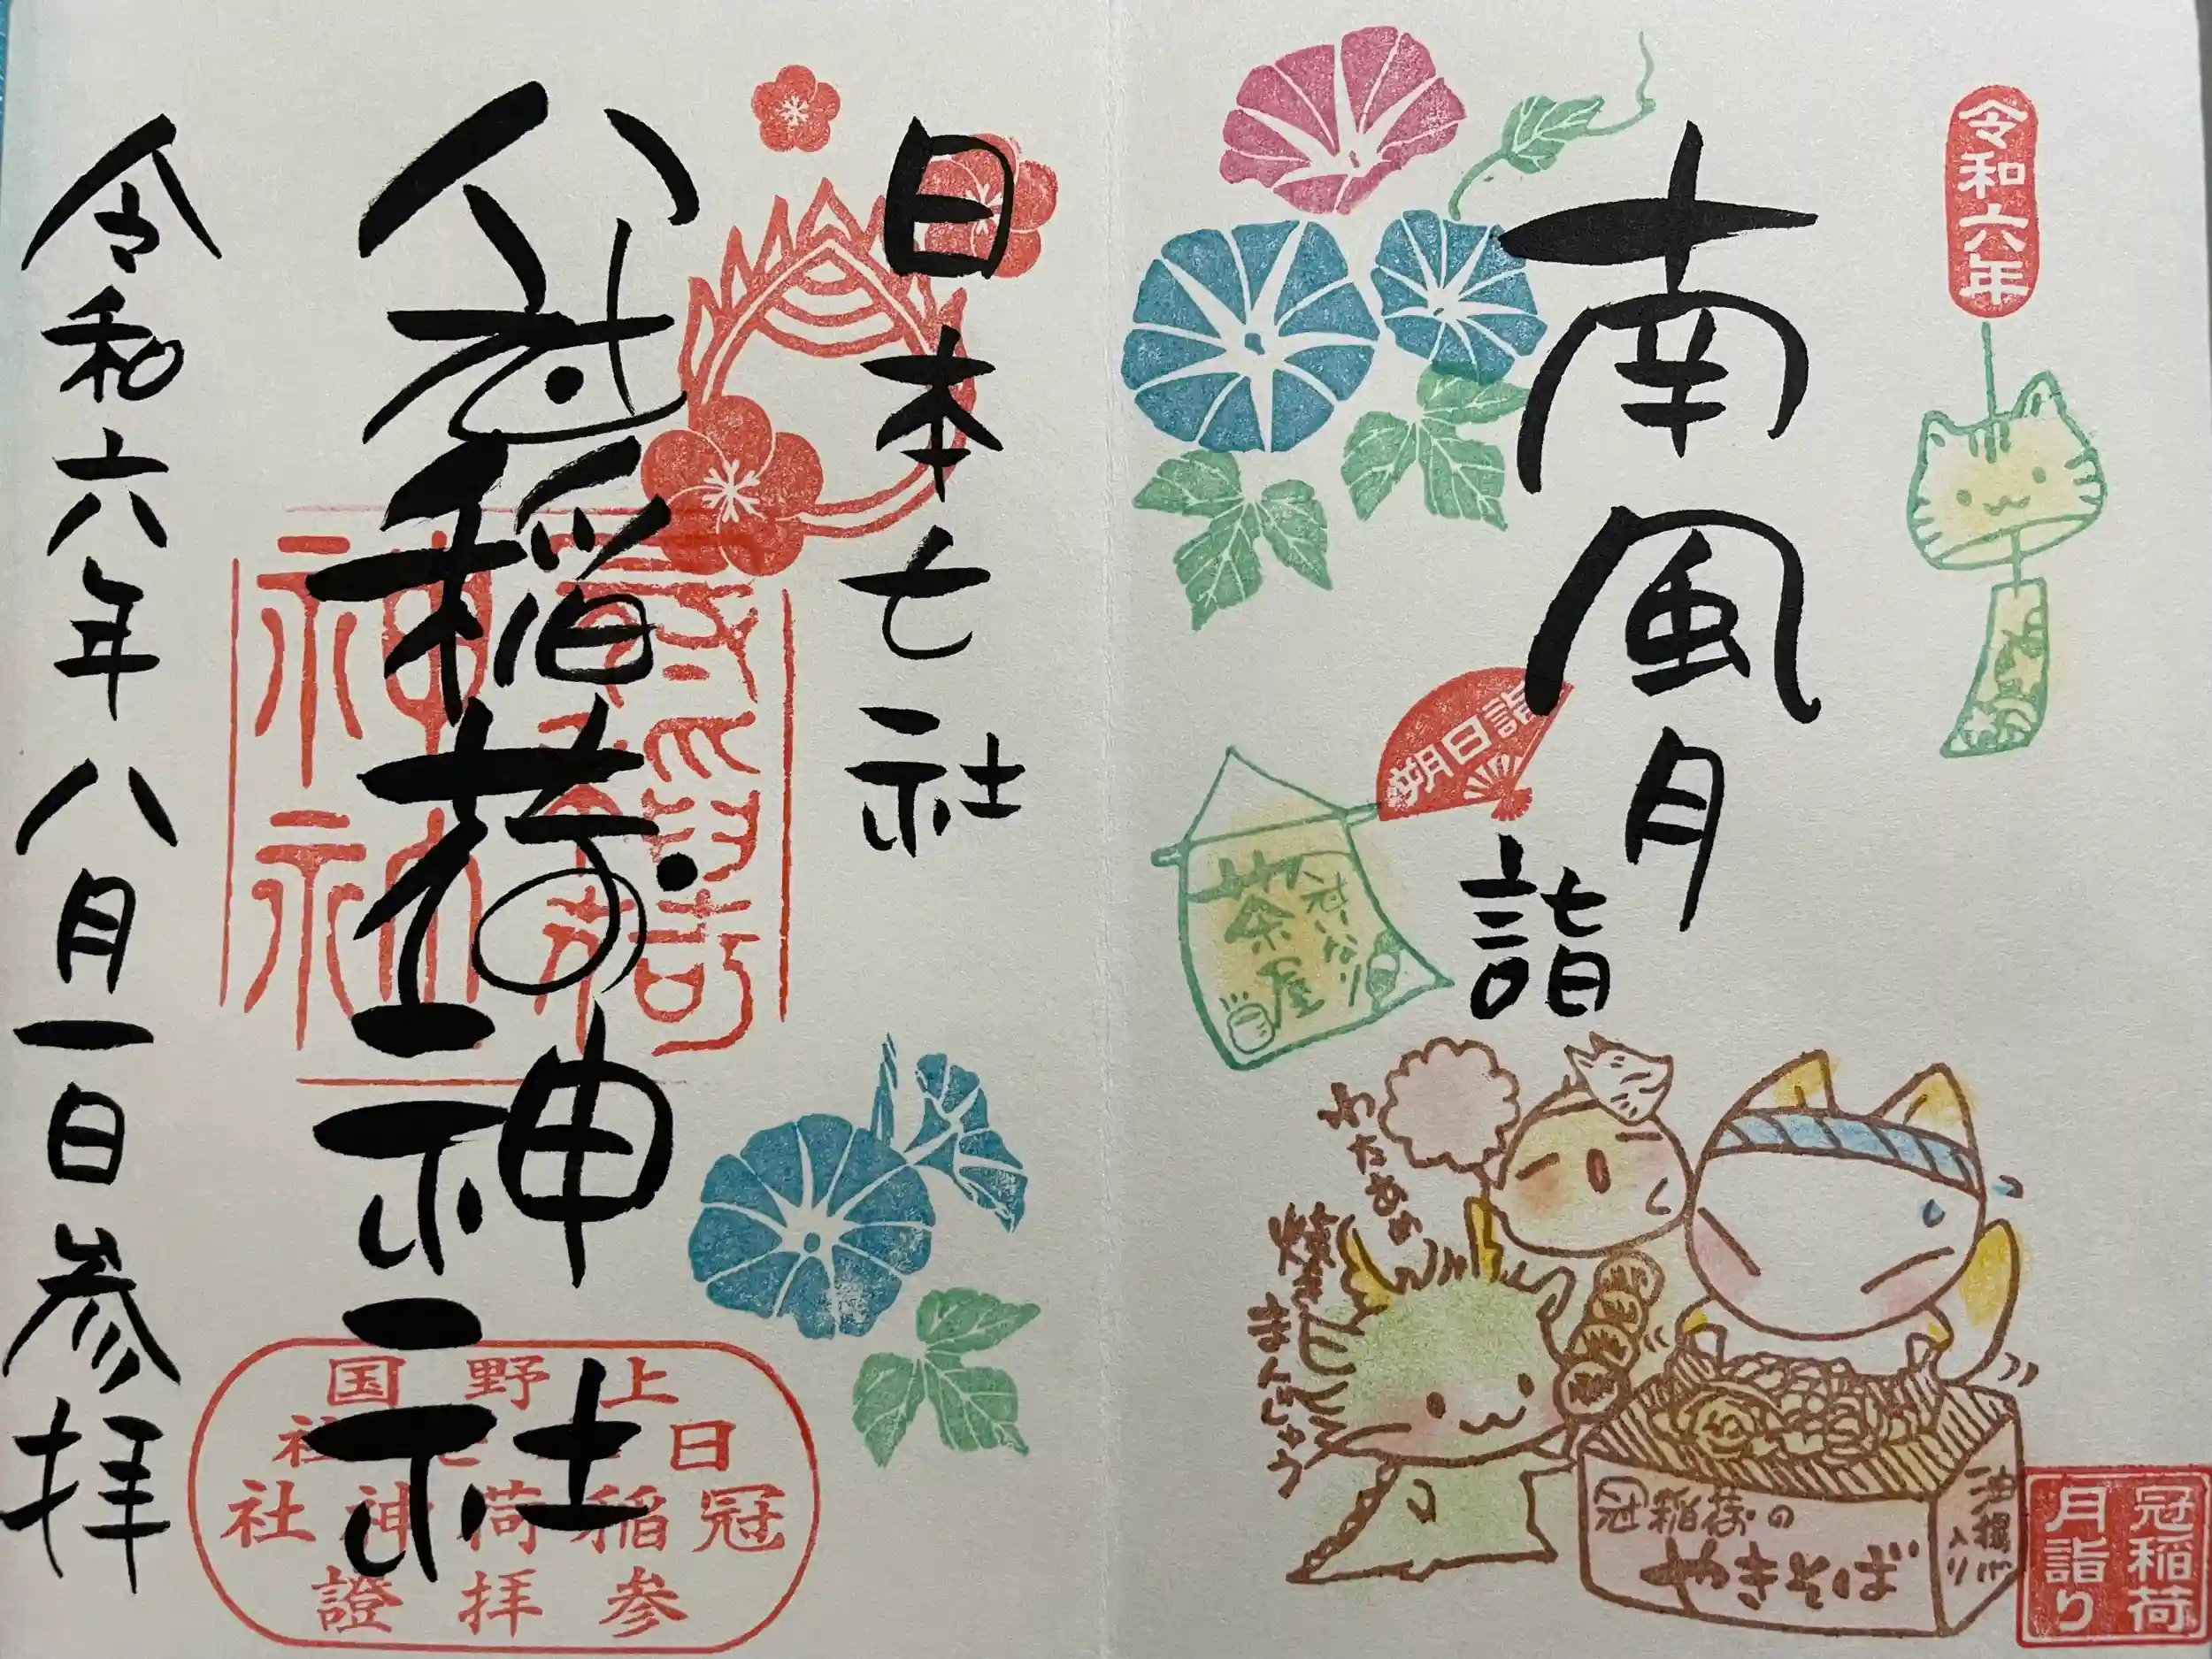 令和六年
南風月
詣
朔日詣
冠いなり
茶屋
わたあめ
焼き
まんじゅう
冠稲荷の
やきそば
油揚げ
入り
冠稲荷
月詣り
日本七社
冠稲荷神社
上野国
日本七社
冠稲荷神社
参拝證
令和六年八月一日参拝